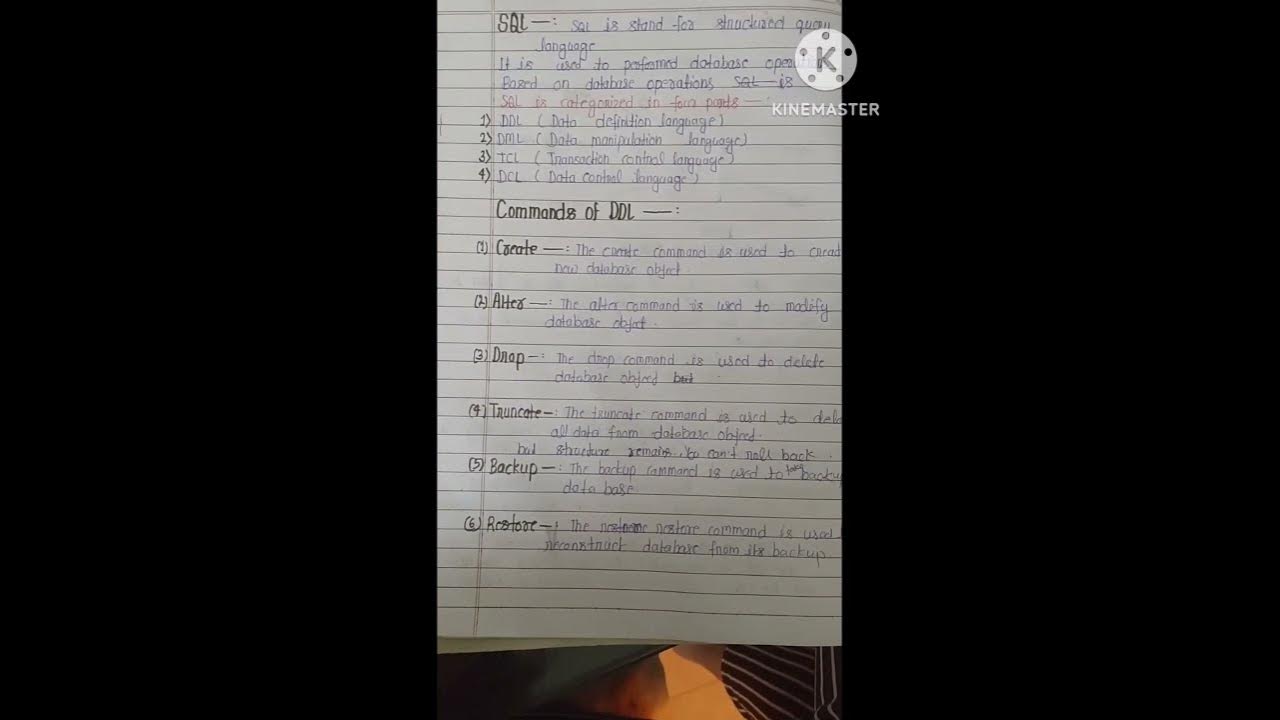 SQL —: SQL is stand for structured query
language
It is used to performed database operati
Based on database operations SQL is
SQL is categorized in four parts —
1) DDL ( Data definition language)
2) DML ( Data manipulation language)
3) TCL ( Transaction control language)
4) DCL ( Data control language )
Commands of DDL —:
(1) Create —: The create command is used to cread
new database object.
(2) Alter —: The alter command is used to modify
database objet.
(3) Drop —: The drop command is used to delete
database object but
(4) Truncate —: The truncate command is used to dele
all data from database object.
but structure remains. can't roll back.
(5) Backup —: The backup command is used to take backup
data base.
(6) Restore —: The restore command is used
reconstruct database from its backup.
K
KINEMASTER